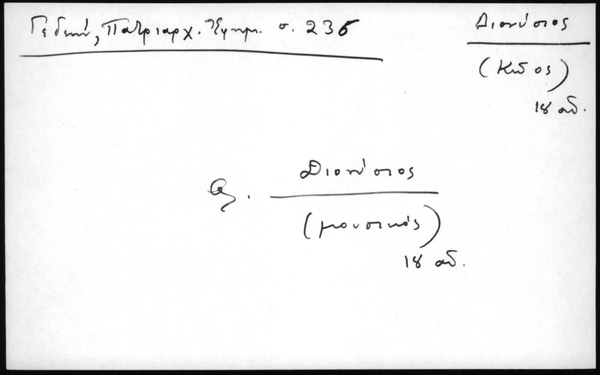 Γεδεών, Πατριαρχ. Ἐφημ. σ. 235
Διονύσιος
(Κῖος)
18 αἰ.
Διονύσιος
(μουσικός)
18 αἰ.